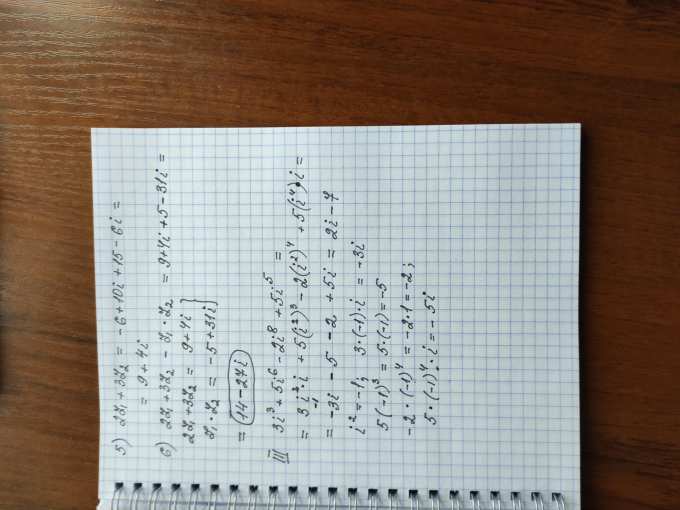 5) 2z₁+3z₂ = -6+10i+15-6i =
= 9+4i
6) 2z₁+3z₂ - z₁·z₂ = 9+4i+5-31i =
2z₁+3z₂ = 9+4i }
z₁·z₂ = -5+31i }
= 14-27i
III 3i³+5i⁶-2i⁸+5i⁵ =
= 3i²·i + 5(i²)³ - 2(i²)⁴ + 5(i⁴)·i =
-1
= -3i - 5 - 2 + 5i = 2i-7
i² = -1; 3·(-1)·i = -3i
5(-1)³ = 5·(-1) = -5
-2·(-1)⁴ = -2·1 = -2;
5·(-1)⁴·i = -5i